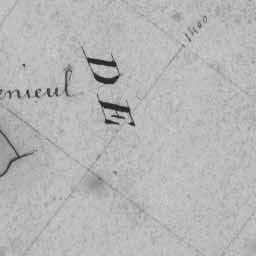 enieul
DE
1400